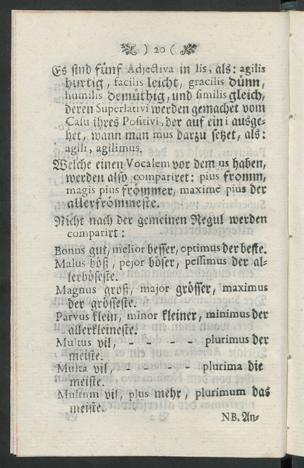 ) 20 (
Es sind fünf Adjectiva in lis, als: agilis
hurtig, facilis leicht, gracilis dünn,
humilis demüthig, und similis gleich,
deren Superlativi werden gemachet vom
Casu ihres Positivi, der auf ein i ausge-
het, wann man mus darzu setzet, als:
agili, agilimus.
Welche einen Vocalem vor dem us haben,
werden also compariret: pius fromm,
magis pius frömmer, maxime pius der
allerfrömmeste.
Nicht nach der gemeinen Regul werden
comparirt:
Bonus gut, melior besser, optimus der beste.
Malus böß, pejor böser, pessimus der al-
lerböseste.
Magnus groß, major grösser, maximus
der grösseste.
Parvus klein, minor kleiner, minimus der
allerkleineste.
Multus vil, - - - - plurimus der
meiste.
Multa vil, - - - - plurima die
meiste.
Multum vil, plus mehr, plurimum das
meiste.
NB. An-